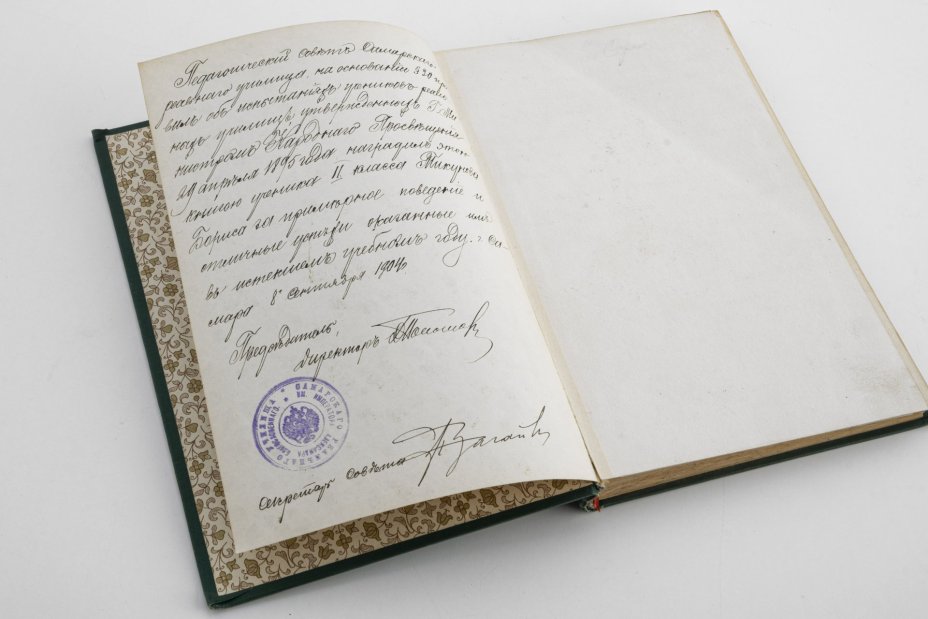 Педагогическій совѣтъ Самарскаго
реальнаго училища, на основаніи § 30 пра-
вилъ объ испытаніяхъ учениковъ реаль-
ныхъ училищъ, утвержденныхъ Г. Ми-
нистромъ Народнаго Просвѣщенія
29 апрѣля 1895 года наградилъ этою
книгою ученика II класса
Бориса за примѣрное поведеніе и
отличные успѣхи оказанные имъ
въ истекшемъ учебномъ году. г. Са-
мара 8 сентября 1904
Предсѣдатель,
директоръ
САМАРСКАГО РЕАЛЬНАГО УЧИЛИЩА
ИМ. ИМПЕРАТОРА АЛЕКСАНДРА БЛАГОСЛОВЕННАГО
Секретарь Совѣта